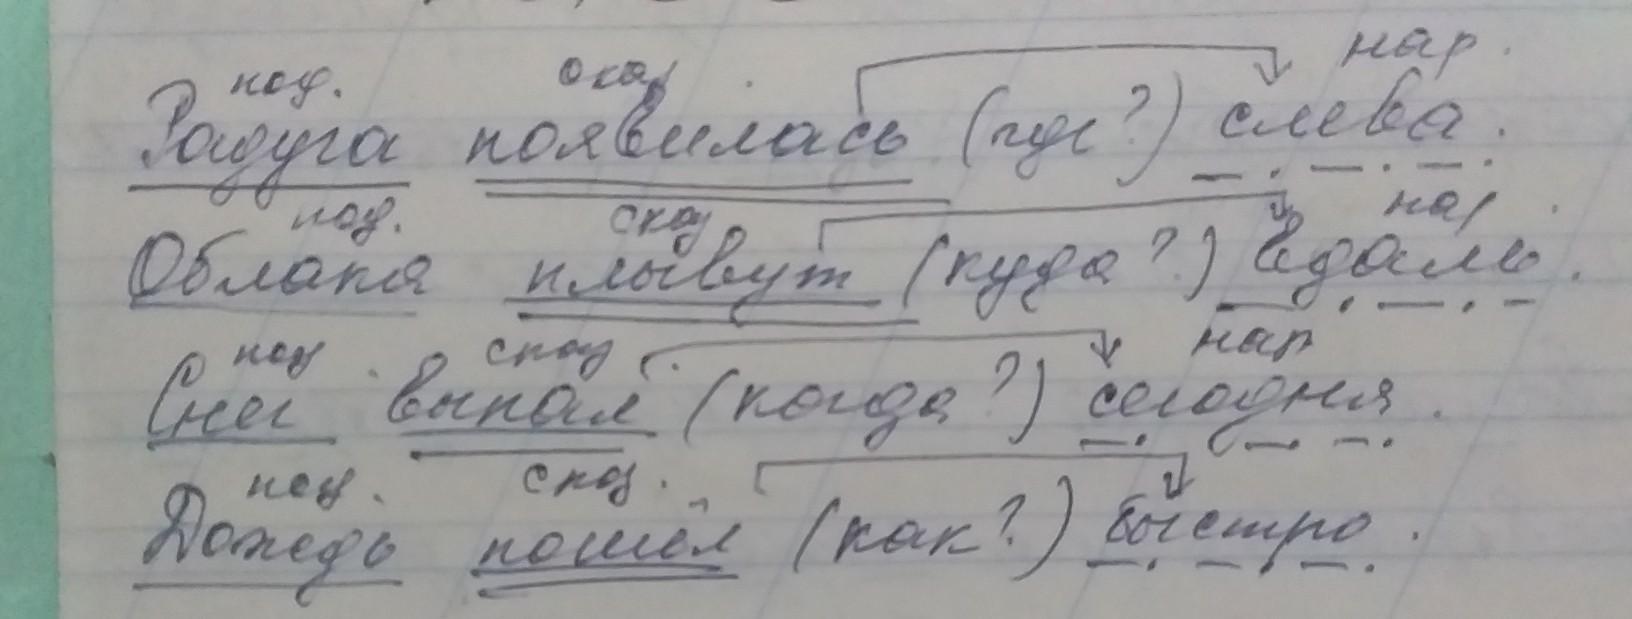 под. сказ нар.
Радуга появилась (где?) слева.
под. сказ нар.
Облака плывут (куда?) вдаль.
под. сказ нар
Снег выпал (когда?) сегодня.
под. сказ.
Дождь пошёл (как?) быстро.